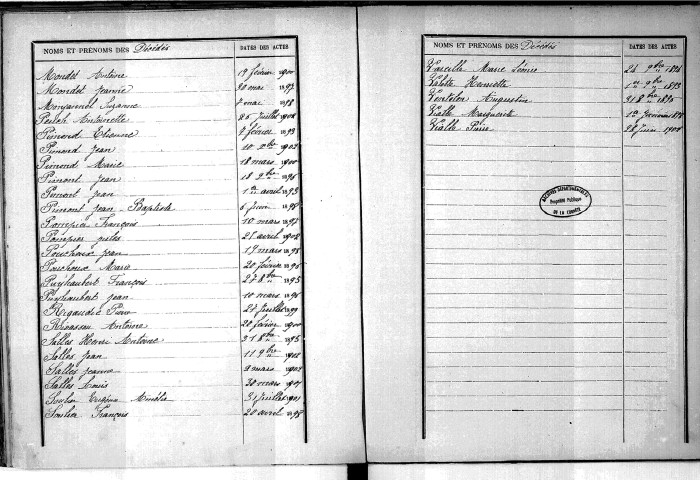 NOMS ET PRÉNOMS DES Décédés DATES DES ACTES
Mondet Antoine 19 février 1900
Mondet Jeanne 30 mai 1897
Suzanne 7 mai 1898
Antoinette 26 juillet 1902
Pimond Etienne 7 février 1893
Pimond Jean 10 1902
Pimond Marie 18 mars 1900
Pimont Jean 18 9bre 1896
Pimont Jean 1er avril 1893
Pimont Jean-Baptiste 6 juin
Pompier François 10 mars 1897
Pompier Jules 21 avril 1902
Pouchoux Jean 17 mars 1898
Pouchoux Marie 20 février 1896
Puyhaubert François 27 8bre 1895
Puyhaubert Jean 10 mars 1896
Rigaudie 27 juillet 1899
Antoine 20 février 1900
Salles Henri Antoine 31 8bre 1895
Salles Jean 11 9bre 1902
Salles Jeanne 9 mars
Salles Louis 30 mars 1901
Soulier Eugène 31 juillet 1901
Soulier François 20 avril 1898
NOMS ET PRÉNOMS DES Décédés DATES DES ACTES
Marie 24 9bre 1896
Valette Henriette 1er 9bre 1893
Ventolon Augustine 31 8bre 1895
Vialle Marguerite 1er
Vialle 28 juin 1902
ARCHIVES DÉPARTEMENTALES
Propriété Publique
DE LA CORRÈZE